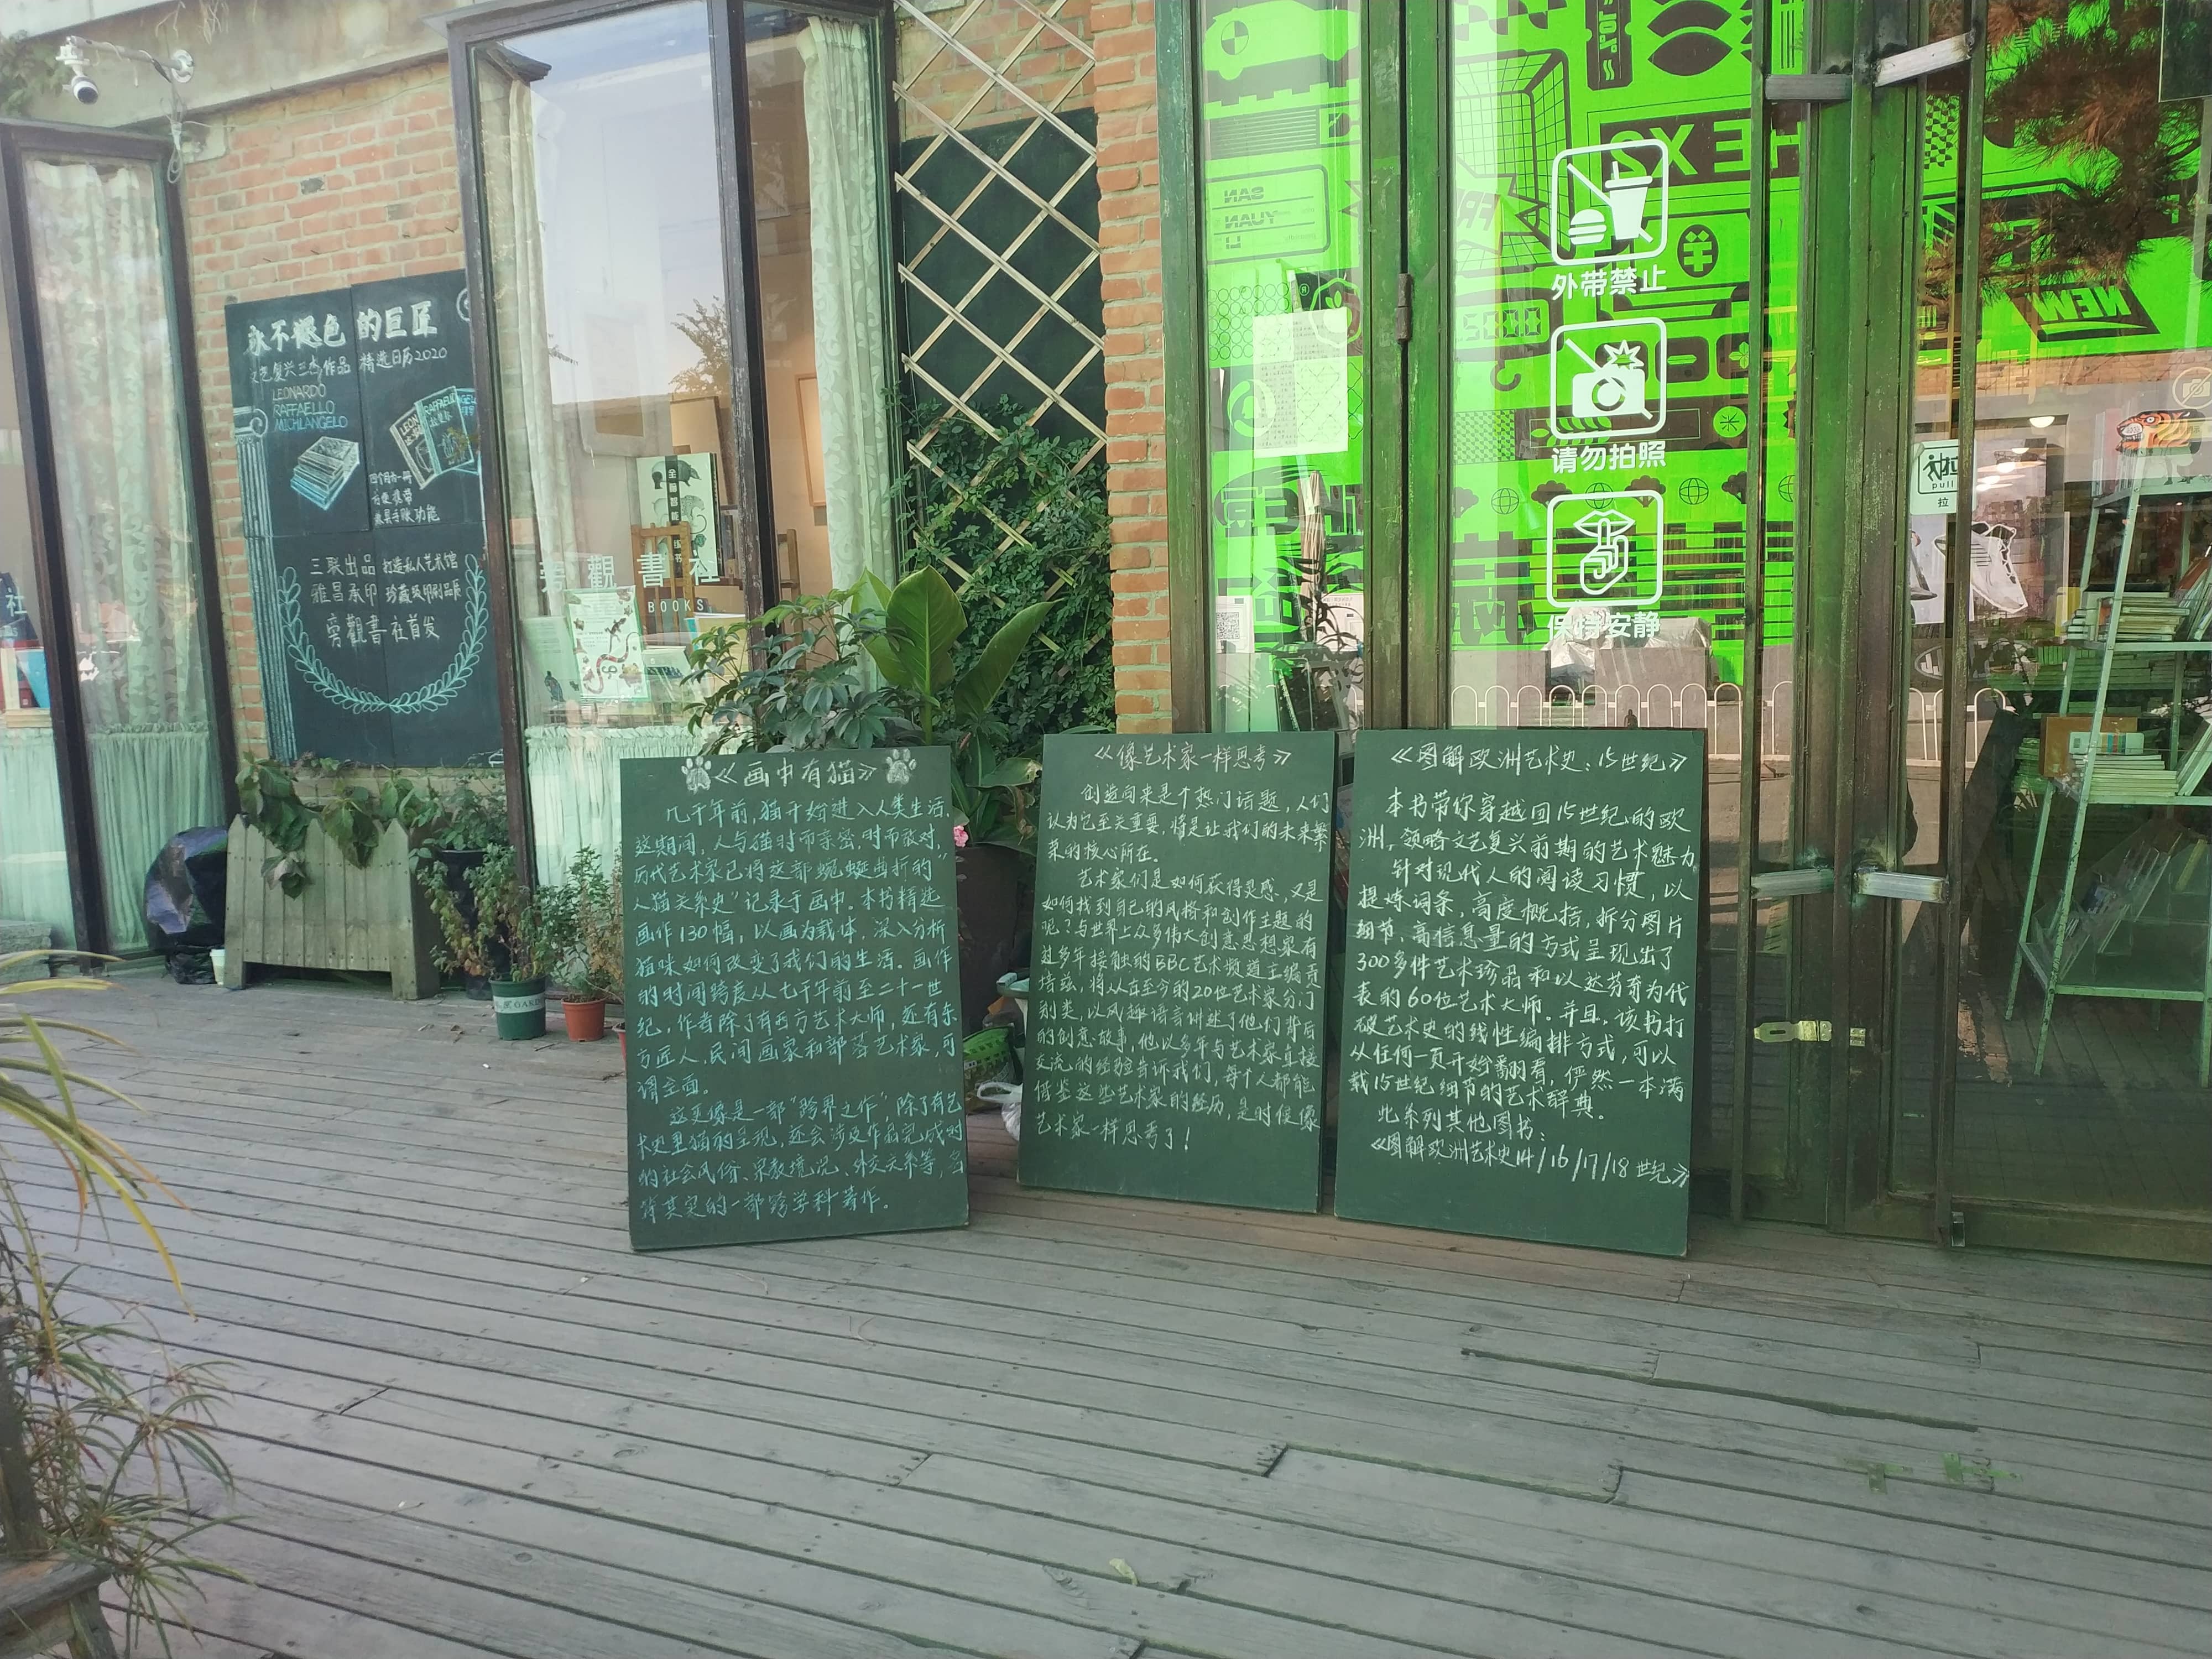 永不褪色的巨匠
文艺复兴三杰作品 精选日历2020
LEONARDO
RAFFAELLO
MICHLANGELO
四个月为一册
方便携带
兼具手账功能
三联出品 打造私人艺术馆
雅昌承印 珍藏级印刷品质
旁觀書社首发
旁觀書社
BOOKS
《画中有猫》
几千年前,猫开始进入人类生活.
这期间,人与猫时而亲密,时而敌对,
历代艺术家已将这部蜿蜒曲折的“
人猫关系史”记录于画中.本书精选
画作130幅,以画为载体,深入分析
猫咪如何改变了我们的生活.画作
的时间跨度从七千年前至二十一世
纪,作者除了有西方艺术大师,还有东
方匠人、民间画家和部落艺术家,可
谓全面。
这更像是一部“跨界之作”,除了有艺
术史里猫的呈现,还会涉及作品完成时
的社会风俗、宗教境况、外交关系等,名
符其实的一部跨学科著作。
《像艺术家一样思考》
创造向来是个热门话题,人们
认为它至关重要,将是让我们的未来繁
荣的核心所在.
艺术家们是如何获得灵感,又是
如何找到自己的风格和创作主题的
呢?与世界上众多伟大创意思想家有
过多年接触的BBC艺术频道主编贡
培兹,将从古至今的20位艺术家分门
别类,以风趣语言讲述了他们背后
的创意故事,他以多年与艺术家直接
交流的经验告诉我们,每个人都能
借鉴这些艺术家的经历,是时候像
艺术家一样思考了!
《图解欧洲艺术史:15世纪》
本书带你穿越回15世纪的欧
洲,领略文艺复兴前期的艺术魅力.
针对现代人的阅读习惯,以
提炼词条,高度概括,拆分图片
细节、高信息量的方式呈现出了
300多件艺术珍品和以达芬奇为代
表的60位艺术大师.并且,该书打
破艺术史的线性编排方式,可以
从任何一页开始翻看,俨然一本满
载15世纪细节的艺术辞典。
此系列其他图书:
《图解欧洲艺术史14/16/17/18世纪》
外带禁止
请勿拍照
保持安静
拉
pull
拉
SAN
YUAN
LI
NEW